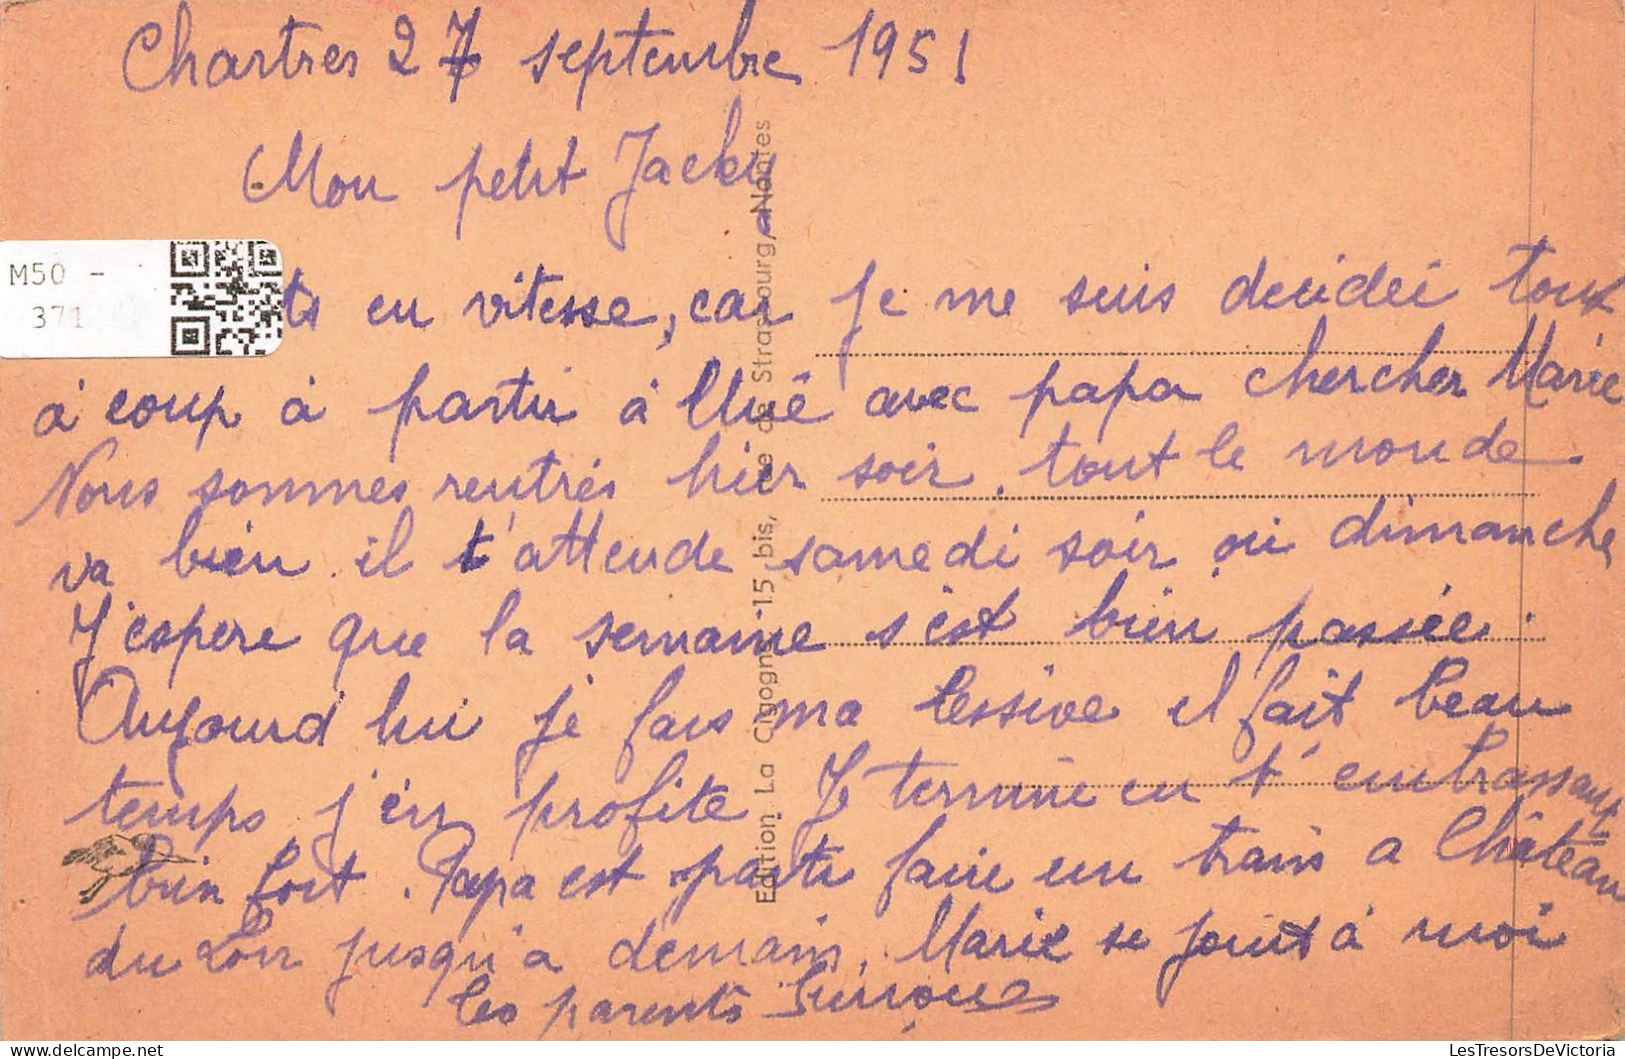 Chartres 27 septembre 1951
Mon petit Jacky,
M50 -
371
ts en vitesse, car je me suis decideé tout
à coup à partir à avec papa chercher Marie
Nous sommes rentrés hier soir, tout le monde
va bien. il t'attende samedi soir ou dimanche
J'espere que la semaine s'est bien passée.
Aujourd hui je fais ma lessive il fait beau
temps j'en profite Je termine en t'embrassant
bien fort. Papa est parti faire un train a Château
du Loir jusqu'a demain. Marie se joint à moi
les parents
Edition La Cigogne - 15 bis, de Strasbourg, Nantes
LesTresorsDeVictoria